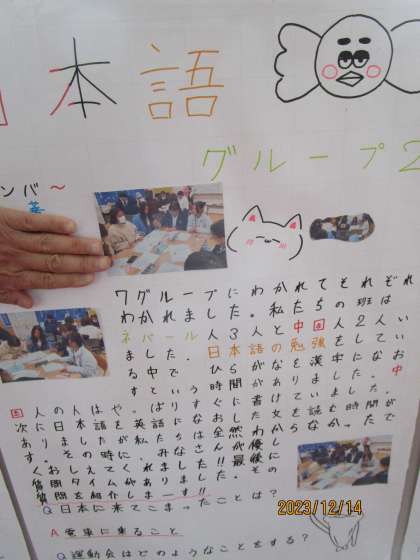 日本語
グループ2
ンバ〜
7グループにわかれてそれぞれ
わかれました。私たちの班は
ネパール人3人と中国人2人い
ました。日本語の勉強をしてい
る中で、ひらがなを漢字になお
すという時間がありました。中
国人の人はやっぱりすぐに書けていました。
次に日本語を英語になおした文を読む時間が
ありましたが私たちは全然わからなかったで
す。その時に、みなさんが優し
くおしえてくれました!!最後に
質問タイムがありました。その
質問を紹介しまーす!!
Q 日本に来てこまったことは?
A 電車に乗ること
Q 運動会はどのようなことをする?
2023/12/14